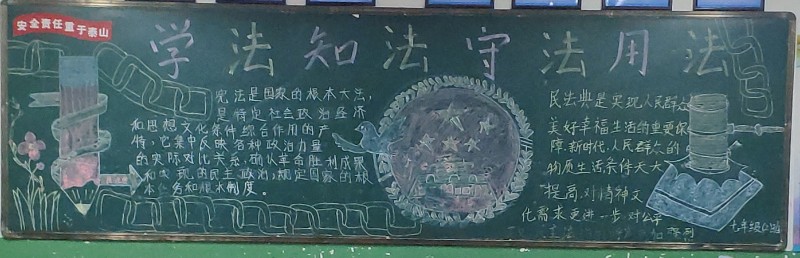 安全责任重于泰山
学法知法守法用法
宪法是国家的根本大法,
是特定社会政治经济
和思想文化条件综合作用的产
物,它集中反映各种政治力量
的实际对比关系,确认革命胜利成果
和现的民主政治,规定国家的根
本任务和根本制度。
民法典是实现人民群众
美好幸福生活的重要保
障,新时代,人民群众的
物质生活条件大大
提高,对精神文
化需求更进一步,对公平
七年级